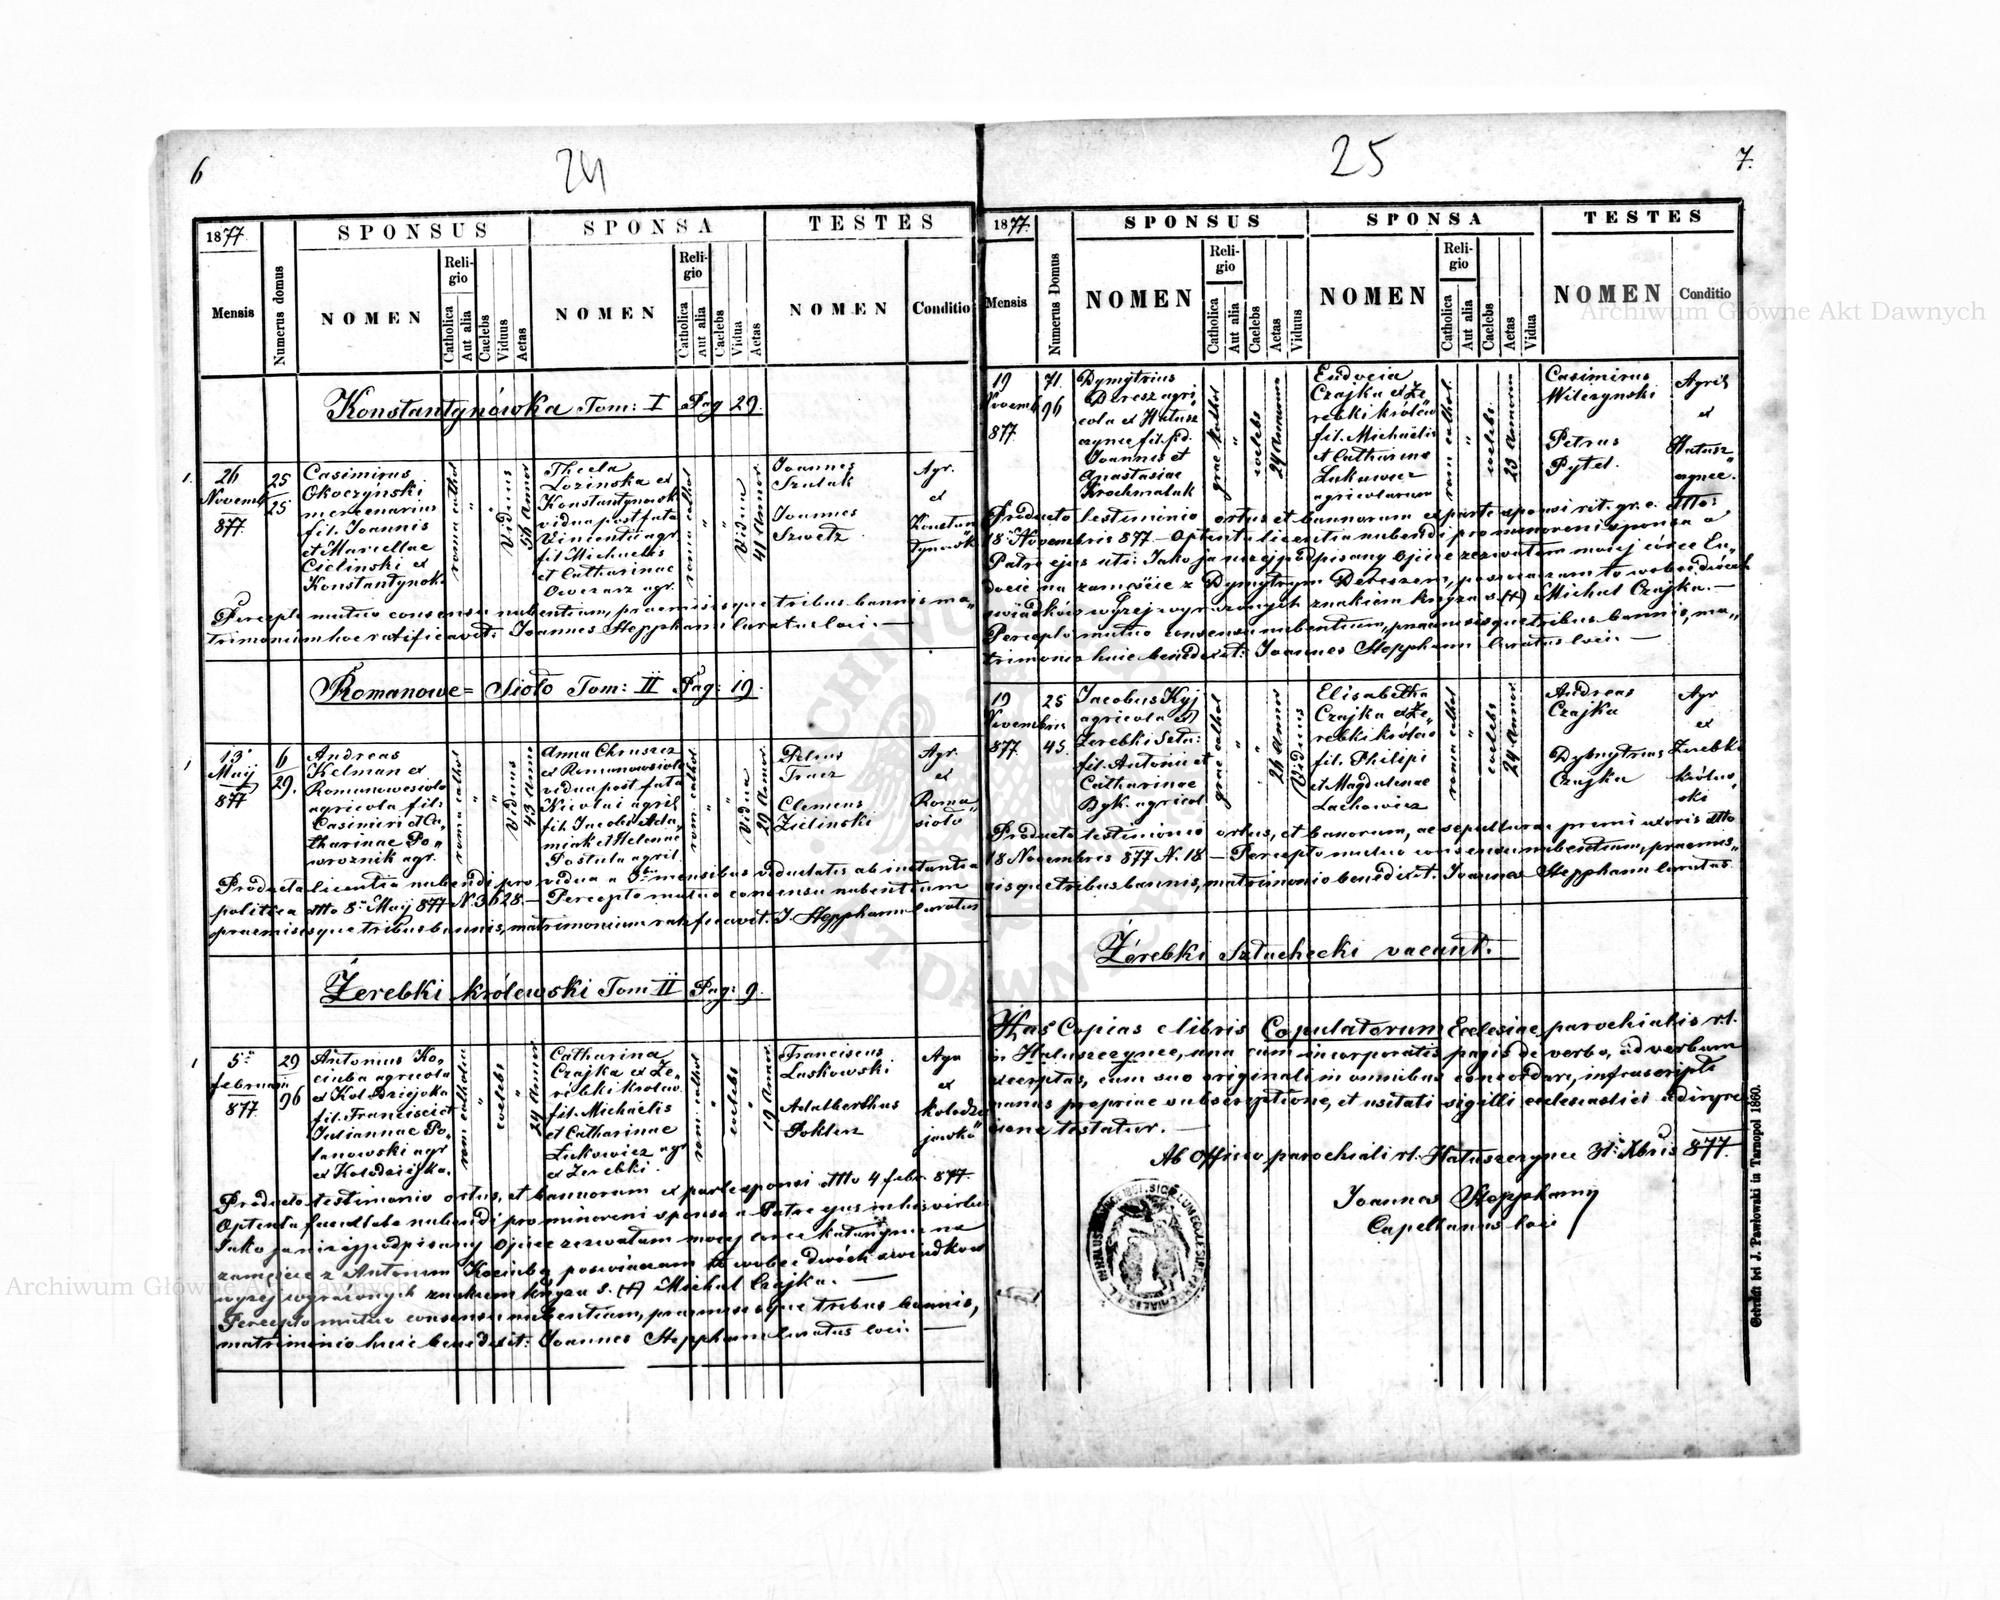 6
24
1877.
SPONSUS
SPONSA
TESTES
Mensis
Numerus domus
NOMEN
Religio
Catholica
Aut alia
Caelebs
Viduus
Aetas
NOMEN
Religio
Catholica
Aut alia
Caelebs
Vidua
Aetas
NOMEN
Conditio
Konstantynówka Tom: I Pag 29.
1.
26
Novemb
877.
25
25
Casimirus
Okoczynski
mercenarius
fil. Joannis
et Marcellae
Cielinski ex
Konstantynók.
romo cathol
"
Viduus
Thecla
Lozinska ex
Konstantynowk
vidua post fata
Vincentii agr.
fil Michaelis
et Catharinae
Owczarz agr.
romo cathol
"
Vidua
41 Annor.
Joannes
Szulak
Joannes
Szwetz
Agr.
ex
Konstan
tynówk
Percepto mutuo consensu nubentium, praemissisque tribus bannis ma„
trimonium hoc ratificavit: Joannes Stepphann Curatus loci. —
Romanowe= Sioło Tom: II Pag: 19.
1
13
Maij
877
6
29.
Andreas
Kelman ex
Romanowesioło
agricola fil:
Casimiri et Ca„
tharinae Po„
woroznik agr.
romo cathol
"
Viduus
43 Annor
Anna Chruszcz
ex Romanowosioło
vidua post fata
Nicolai agril
fil. Jacobi Ada„
miak et Helenae
Postula agril.
rom. cathol
"
Vidua
29 Annor.
Petrus
Tracz
Clemens
Zielinski
Agr.
ex
Roma„
sioło
Producta licentia nubendi pro vidua a mensibus viduitatis ab instantia
politica dtto 8 Maij 877 N. 3628. — Percepto mutuo consensu nubentium
praemissisque tribus bannis, matrimonium ratificavit. J. Stepphann Curatus
Żerebki królewski Tom II Pag: 9.
1
5
februarii
877.
29
96
Antonius Ko„
ciuba agricola
ex Kolodziejoka
fil. Francisci et
Juliannae Po„
lanowski agr
ex Kolodziejka.
rom catholica
"
coelebs
"
24 Annor
Catharina
Czajka ex Że„
rebki królew.
fil. Michaelis
et Catharinae
Łukowicz agr
ex Zerebki
rom: cathol
"
coelebs
"
19 Annor.
Franciscus
Laskowski
Adalberthus
Poklerz
Agr
ex
kolodze
jowkó
Producto testimonio ortus, et bannorum ex parte sponsi dtto 4 febr 877.
Optenta facultate nubendi pro minoreni sponsa a Patre ejus in his verbis
Jako ja nizej podpisany Ojciec zezwalam mojej corce katarzyne na
zamęscie z Antonim Kociubą poswiaczam to wobec dwóch swiadkow
wyzej wyrazonych znakiem krzyza s. (+) Michal Czajka. —
Percepto mutuo consensu nubentium, praemissisque tribus bannis,
matrimonio huic benedixit: Joannes Stepphann Curatus loci. —
25
7.
1877.
SPONSUS
SPONSA
TESTES
Mensis
Numerus Domus
NOMEN
Religio
Catholica
Aut alia
Caelebs
Aetas
Viduus
NOMEN
Religio
Catholica
Aut alia
Caelebs
Aetas
Vidua
NOMEN
Conditio
19
Novemb
877.
71.
96
Dymytrius
Deresz agri
cola ex Hałusz
czynce fil. fid.
Joannis et
Anastasiae
Krochmaluk
grae kathol
"
coelebs
24 Annorum
Eudocia
Czajka ex Że„
rebki królew
fil. Michaëlis
et Catharinae
Łukowicz
agricolarum
rom cathol.
"
coelebs.
23 Annorum
Casimirus
Wilczynski
Petrus
Pytel.
Agril
ex
Hałusz„
czynce.
Producto testiminio ortus et bannorum ex parte sponsi rit. gr. c. dtto:
18 Novembris 877 — Optenta licentia nubendi pro minoreni sponsa a
Patre ejus uti: Jako ja nizej podpisany Ojciec zezwalam mojej córce Eu„
docie na zamęście z Dymytrym Dereszem, poswiaczam to wobec dwóch
swiadków wyzej wyrazonych znakiem krzyza s. (+) Michal Czajka. —
Percepto mutuo consensu nubentium, praemissisque tribus bannis, ma„
trimonio huic benedixit: Joannes Stepphann Curatus loci. —
19
Novembris
877.
25
45.
Jacobus Kyj
agricola ex
Żerebki
fil. Antonii et
Catharinae
Dyk. agricol
grae cathol
"
26 Annor
Viduus
Elisabetha
Czajka ex Że„
rebki królew
fil. Philipi
et Magdalenae
Lackowicz
romo cathol
"
coelebs
24 Annor
Andreas
Czajka
Dymytrius
Czajka
Agr
ex
Zerebki
królew„
ski
Producto testimonio ortus, et banorum, ac sepulturae premi uxoris dtto
18 Novembris 877 N. 18 — Percepto mutuo consensu nubentium, praemis„
sisque tribus bannis, matrimonio benedixit. Joannes Stepphann Curatus.
Żérebki Szlachecki vacant.
Has Copias e libris Copulatorum Ecclesiae parochialis r.l.
in Hałuszczynce, una cum incorporatis pagis de verbo, ad verbum
excerptas, cum suo originali in omnibus concordare, infrascripti
manus propriae subscriptione, et usitati sigilli ecclesiastici adimpre
sione testatur. —
Ab Officio parochiali r.l. Hałuszczynce 31 Xbris 877.
Joannes Stepphann
Capellanus loci
Gedruckt bei J. Pawłowski in Tarnopol 1860.
Archiwum Główne Akt Dawnych
Archiwum Główne Akt Dawnych